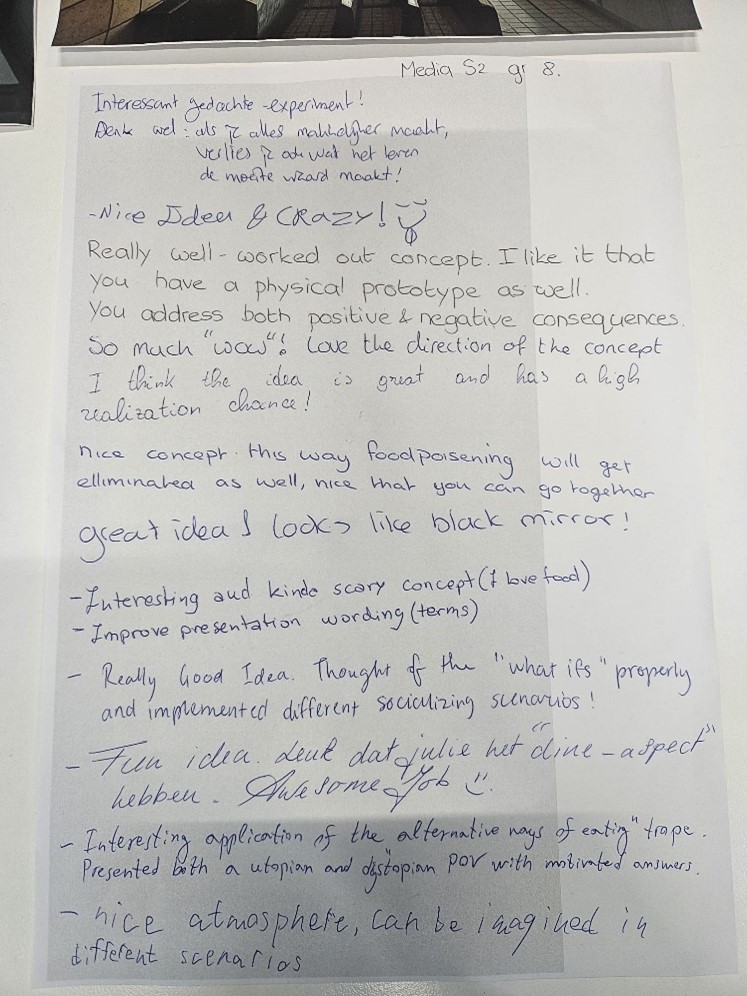 Media S2 gr 8.
Interessant gedachte-experiment!
Denk wel: als je alles makkelijker maakt,
verlies je ook wat het leven
de moeite waard maakt!
-Nice Idea & CRAZY!
Really well-worked out concept. I like it that
you have a physical prototype as well.
You address both positive & negative consequences.
So much "wow"! Love the direction of the concept
I think the idea is great and has a high
realization chance!
nice concept. this way foodpoisening will get
elliminated as well, nice that you can go together
great idea! looks like black mirror!
-Interesting and kinda scary concept (I love food)
-Improve presentation wording (terms)
- Really Good Idea. Thought of the "what ifs" properly
and implemented different socializing scenarios!
- Fun idea. leuk dat julie het "dine-aspect"
hebben. Awesome Job
- Interesting application of the "alternative ways of eating" trope.
Presented both a utopian and dystopian POV with motivated answers.
- nice atmosphere, can be imagined in
different scenarios